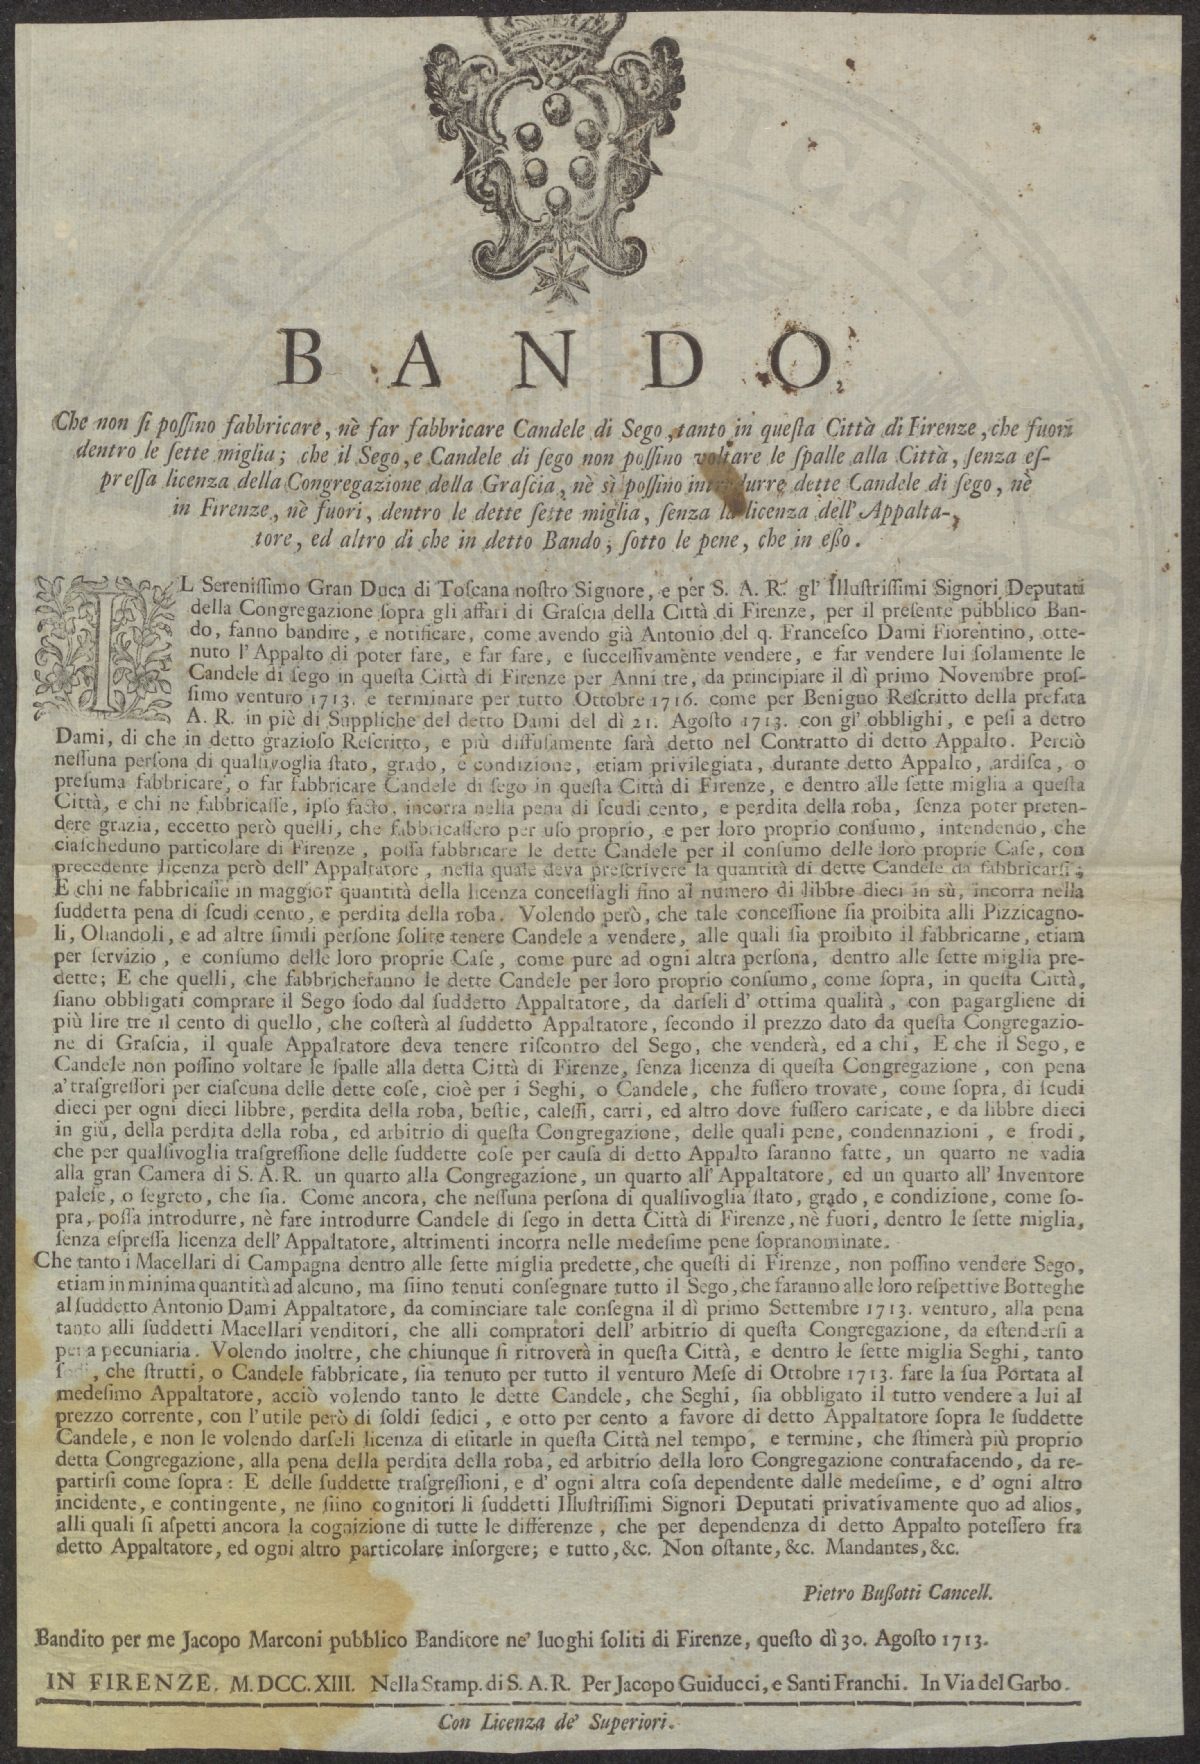 BANDO,
Che non si possino fabbricare, nè far fabbricare Candele di Sego, tanto in questa Città di Firenze, che fuori
dentro le sette miglia; che il Sego, e Candele di sego non possino voltare le spalle alla Città, senza es-
pressa licenza della Congregazione della Grascia, nè si possino introdurre dette Candele di sego, nè
in Firenze, nè fuori, dentro le dette sette miglia, senza la licenza dell' Appalta-
tore, ed altro di che in detto Bando, sotto le pene, che in eßo.
IL Serenissimo Gran Duca di Toscana nostro Signore, e per S. A. R. gl' Illustrissimi Signori Deputati
della Congregazione sopra gli affari di Grascia della Città di Firenze, per il presente pubblico Ban-
do, fanno bandire, e notificare, come avendo già Antonio del q. Francesco Dami Fiorentino, otte-
nuto l'Appalto di poter fare, e far fare, e successivamente vendere, e far vendere lui solamente le
Candele di sego in questa Città di Firenze per Anni tre, da principiare il dì primo Novembre pros-
simo venturo 1713. e terminare per tutto Ottobre 1716. come per Benigno Rescritto della prefata
A. R. in piè di Suppliche del detto Dami del dì 21. Agosto 1713. con gl' obblighi, e pesi a detto
Dami, di che in detto grazioso Rescritto, e più diffusamente sarà detto nel Contratto di detto Appalto. Perciò
nessuna persona di qualsivoglia stato, grado, e condizione, etiam privilegiata, durante detto Appalto, ardisca, o
presuma fabbricare, o far fabbricare Candele di sego in questa Città di Firenze, e dentro alle sette miglia a questa
Città, e chi ne fabbricasse, ipso facto, incorra nella pena di scudi cento, e perdita della roba, senza poter preten-
dere grazia, eccetto però quelli, che fabbricassero per uso proprio, e per loro proprio consumo, intendendo, che
ciascheduno particolare di Firenze, possa fabbricare le dette Candele per il consumo delle loro proprie Case, con
precedente licenza però dell' Appaltatore, nella quale deva prescrivere la quantità di dette Candele da fabbricarsi;
E chi ne fabbricasse in maggior quantità della licenza concessagli fino al numero di libbre dieci in sù, incorra nella
suddetta pena di scudi cento, e perdita della roba. Volendo però, che tale concessione sia proibita alli Pizzicagno-
li, Oliandoli, e ad altre simili persone solite tenere Candele a vendere, alle quali sia proibito il fabbricarne, etiam
per servizio, e consumo delle loro proprie Case, come pure ad ogni altra persona, dentro alle sette miglia pre-
dette; E che quelli, che fabbricheranno le dette Candele per loro proprio consumo, come sopra, in questa Città,
siano obbligati comprare il Sego sodo dal suddetto Appaltatore, da darseli d' ottima qualità, con pagargliene di
più lire tre il cento di quello, che costerà al suddetto Appaltatore, secondo il prezzo dato da questa Congregazio-
ne di Grascia, il quale Appaltatore deva tenere riscontro del Sego, che venderà, ed a chi, E che il Sego, e
Candele non possino voltare le spalle alla detta Città di Firenze, senza licenza di questa Congregazione, con pena
a' trasgressori per ciascuna delle dette cose, cioè per i Seghi, o Candele, che fussero trovate, come sopra, di scudi
dieci per ogni dieci libbre, perdita della roba, bestie, calessi, carri, ed altro dove fussero caricate, e da libbre dieci
in giù, della perdita della roba, ed arbitrio di questa Congregazione, delle quali pene, condennazioni, e frodi,
che per qualsivoglia trasgressione delle suddette cose per causa di detto Appalto saranno fatte, un quarto ne vadia
alla gran Camera di S. A. R. un quarto alla Congregazione, un quarto all' Appaltatore, ed un quarto all' Inventore
palese, o segreto, che sia. Come ancora, che nessuna persona di qualsivoglia stato, grado, e condizione, come so-
pra, possa introdurre, nè fare introdurre Candele di sego in detta Città di Firenze, nè fuori, dentro le sette miglia,
senza espressa licenza dell' Appaltatore, altrimenti incorra nelle medesime pene sopranominate.
Che tanto i Macellari di Campagna dentro alle sette miglia predette, che questi di Firenze, non possino vendere Sego,
etiam in minima quantità ad alcuno, ma siino tenuti consegnare tutto il Sego, che faranno alle loro respettive Botteghe
al suddetto Antonio Dami Appaltatore, da cominciare tale consegna il dì primo Settembre 1713. venturo, alla pena
tanto alli suddetti Macellari venditori, che alli compratori dell' arbitrio di questa Congregazione, da estendersi a
pena pecuniaria. Volendo inoltre, che chiunque si ritroverà in questa Città, e dentro le sette miglia Seghi, tanto
sodi, che strutti, o Candele fabbricate, sia tenuto per tutto il venturo Mese di Ottobre 1713. fare la sua Portata al
medesimo Appaltatore, acciò volendo tanto le dette Candele, che Seghi, sia obbligato il tutto vendere a lui al
prezzo corrente, con l'utile però di soldi sedici, e otto per cento a favore di detto Appaltatore sopra le suddette
Candele, e non le volendo darseli licenza di esitarle in questa Città nel tempo, e termine, che stimerà più proprio
detta Congregazione, alla pena della perdita della roba, ed arbitrio della loro Congregazione contrafacendo, da re-
partirsi come sopra: E delle suddette trasgressioni, e d' ogni altra cosa dependente dalle medesime, e d' ogni altro
incidente, e contingente, ne siino cognitori li suddetti Illustrissimi Signori Deputati privativamente quo ad alios,
alli quali si aspetti ancora la cognizione di tutte le differenze, che per dependenza di detto Appalto potessero fra
detto Appaltatore, ed ogni altro particolare insorgere; e tutto, &c. Non ostante, &c. Mandantes, &c.
Pietro Bußotti Cancell.
Bandito per me Jacopo Marconi pubblico Banditore ne' luoghi soliti di Firenze, questo dì 30. Agosto 1713.
IN FIRENZE. M.DCC.XIII. Nella Stamp. di S. A. R. Per Jacopo Guiducci, e Santi Franchi. In Via del Garbo.
Con Licenza de' Superiori.